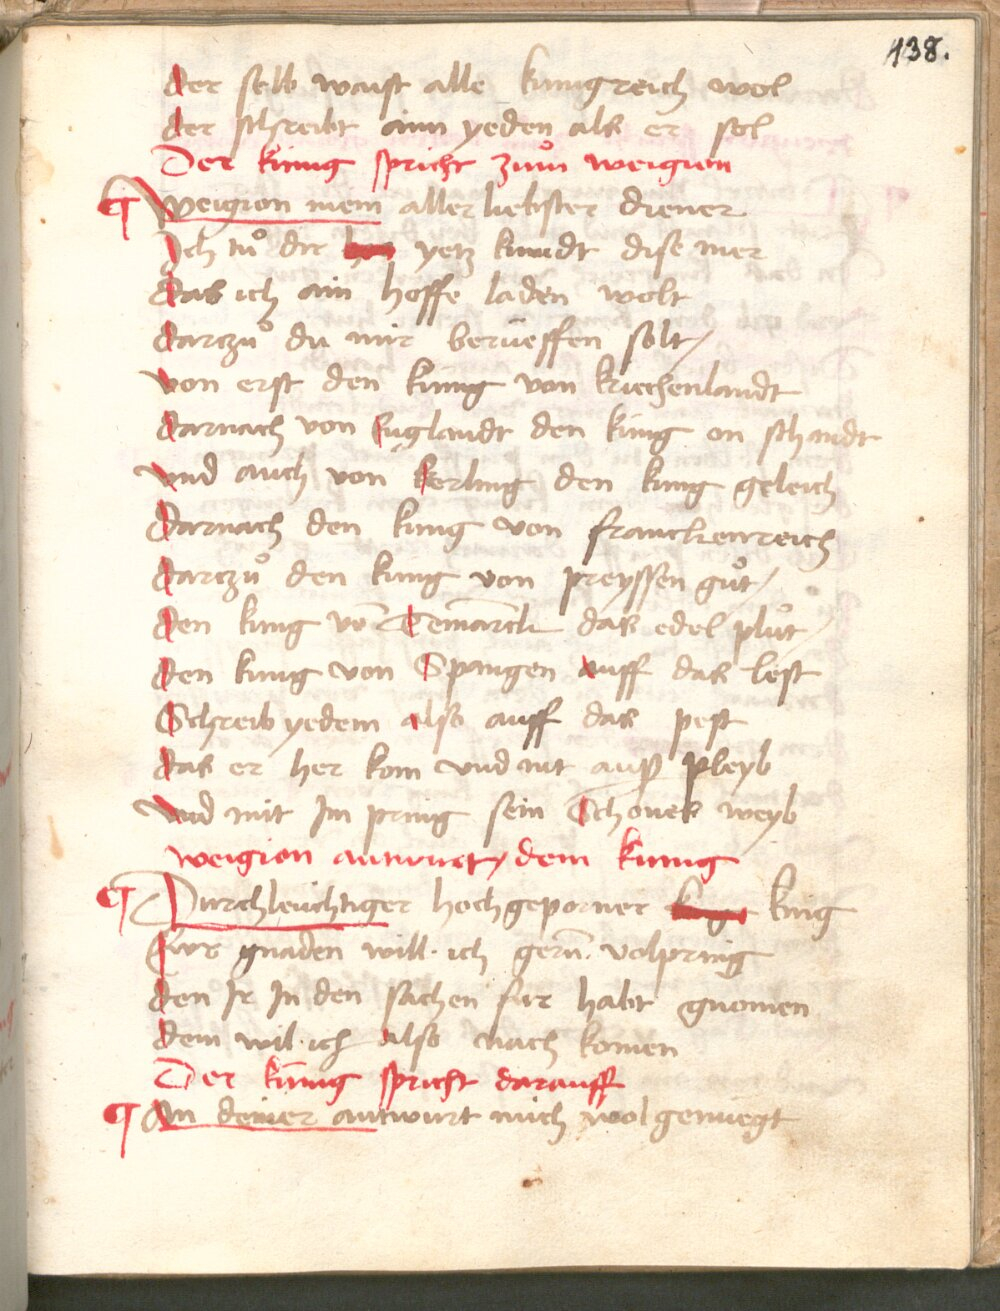 138.
der selb waist alle kunigreich wol
der schreibt ainn yeden als er sol
Der künig spricht zuͦm weigion
¶ Weigion mein aller liebster diener
Ich tuͦ dir yetz kundt dise mer
das ich ain hoffe laden wolt
darczuͦ du mir berueffen solt /
von erst den künig von kriechenlandt
darnach von Englandt den king on schandt
vnd auch von kerling den kung geleich
Darnach den kung von franckenreich
darczuͦ den king von preyssen guͦt /
den king võ Temarck das edel pluͦt /
den kung von Spangen auff das lest
Schreib yedem also auff das pest
das er her kom vnd nit ausz pleyb
vnd mit Im pring sein Schones weyb
weigion antwurt / dem künig
¶ Durchleuchtiger hochgeporner king
Ewr gnaden will ich gern̄ volpring
den Ir In den sachen fur habt gnomen
dem wil ich also nach komen
Der künig spricht darauff
¶ An deiner antwurt mich wol genuegt